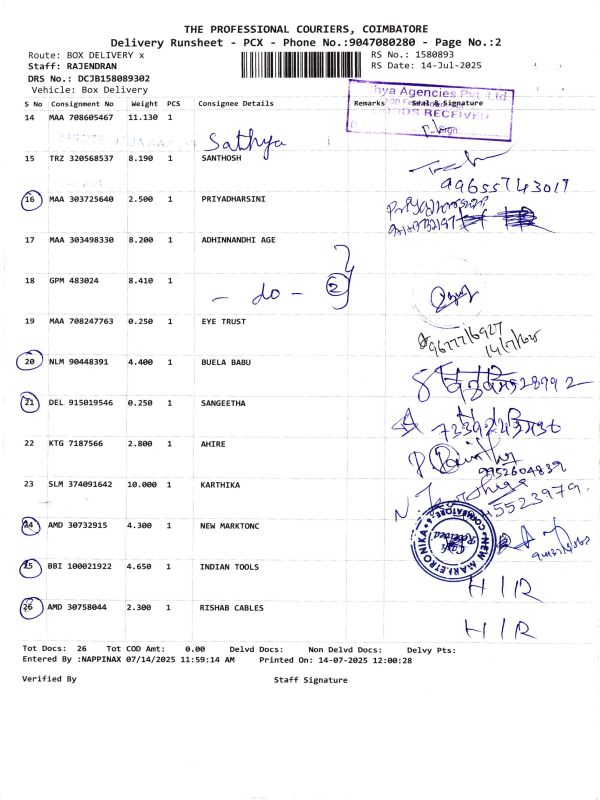 THE PROFESSIONAL COURIERS, COIMBATORE
Delivery Runsheet - PCX - Phone No.:9047080280 - Page No.:2
Route: BOX DELIVERY x
RS No.: 1580893
Staff: RAJENDRAN
RS Date: 14-Jul-2025
DRS No.: DCJB158089302
Vehicle: Box Delivery
hya Agencies Pvt. Ltd
S No Consignment No Weight PCS Consignee Details Remarks Seal & Signature
14 MAA 708605467 11.130 1
GOODS RECEIVED
Sign
Sathya
15 TRZ 320568537 8.190 1 SANTHOSH
99655743017
16 MAA 303725640 2.500 1 PRIYADHARSINI
17 MAA 303498330 8.200 1 ADHINNANDHI AGE
18 GPM 483024 8.410 1
- do - 2
19 MAA 708247763 0.250 1 EYE TRUST
9677716927
14/7/25
20 NLM 90448391 4.400 1 BUELA BABU
21 DEL 915019546 0.250 1 SANGEETHA
22 KTG 7187566 2.800 1 AHIRE
9952604839
23 SLM 374091642 10.000 1 KARTHIKA
5523979.
24 AMD 30732915 4.300 1 NEW MARKTONC
NEW MARKETRONIKA
COIMBATORE
25 BBI 100021922 4.650 1 INDIAN TOOLS
H I R
26 AMD 30758044 2.300 1 RISHAB CABLES
H I R
Tot Docs: 26 Tot COD Amt: 0.00 Delvd Docs: Non Delvd Docs: Delvy Pts:
Entered By :NAPPINAX 07/14/2025 11:59:14 AM Printed On: 14-07-2025 12:00:28
Verified By Staff Signature